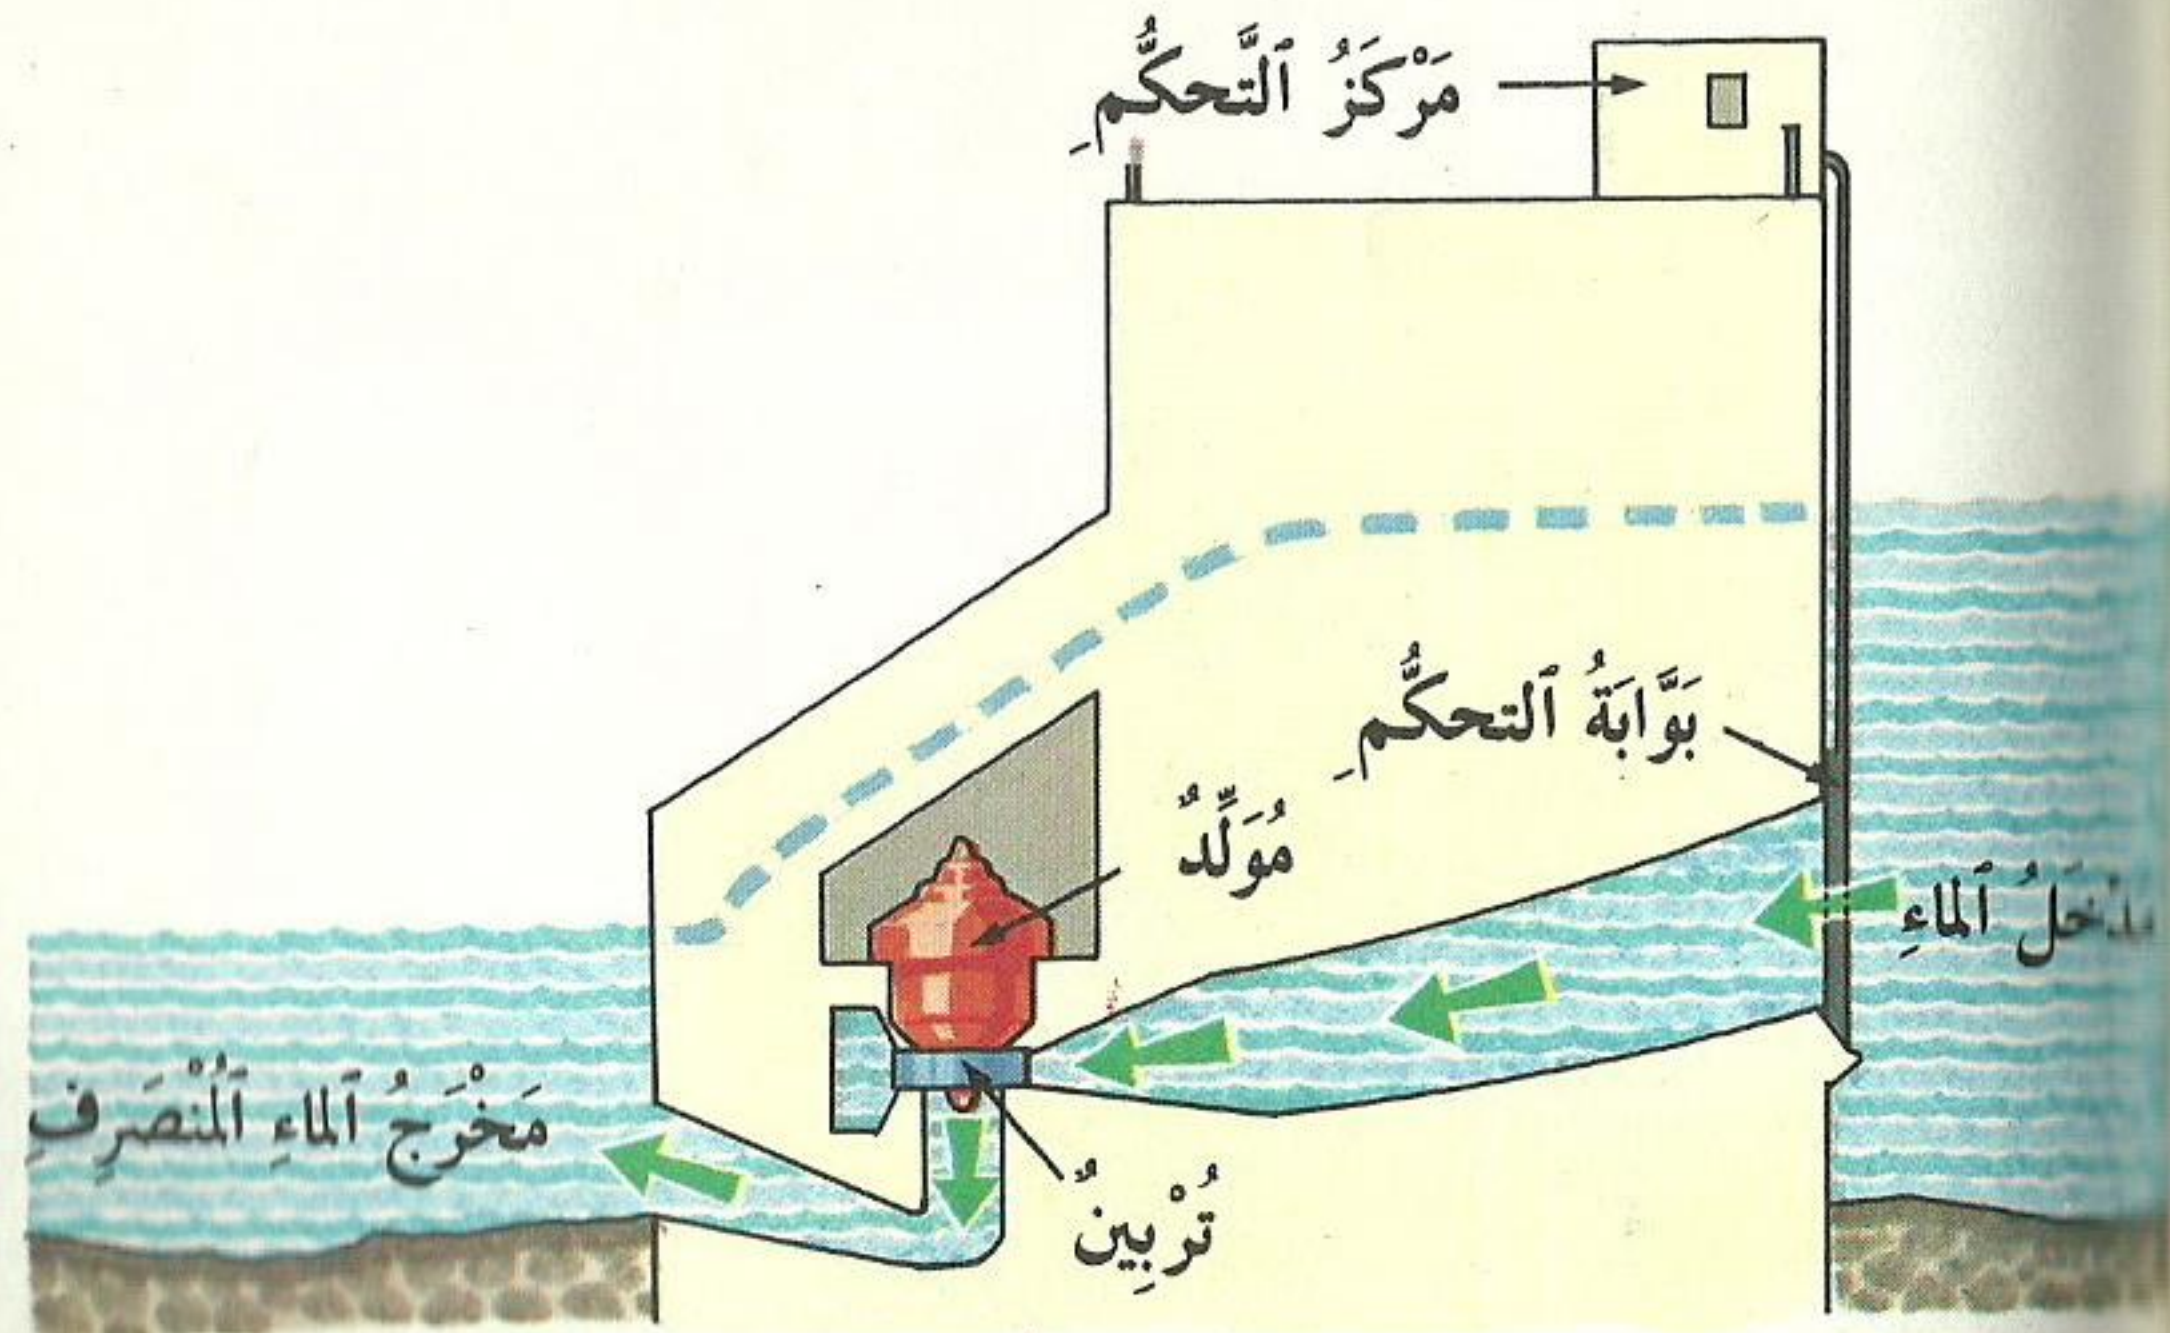 مَرْكَزُ ٱلتَّحكُّمِ
بَوَّابَةُ ٱلتحكُّمِ
مُوَلِّدٌ
مَدْخَلُ ٱلماءِ
مَخْرَجُ ٱلماءِ ٱلمُنْصَرِفِ
تُرْبِينٌ